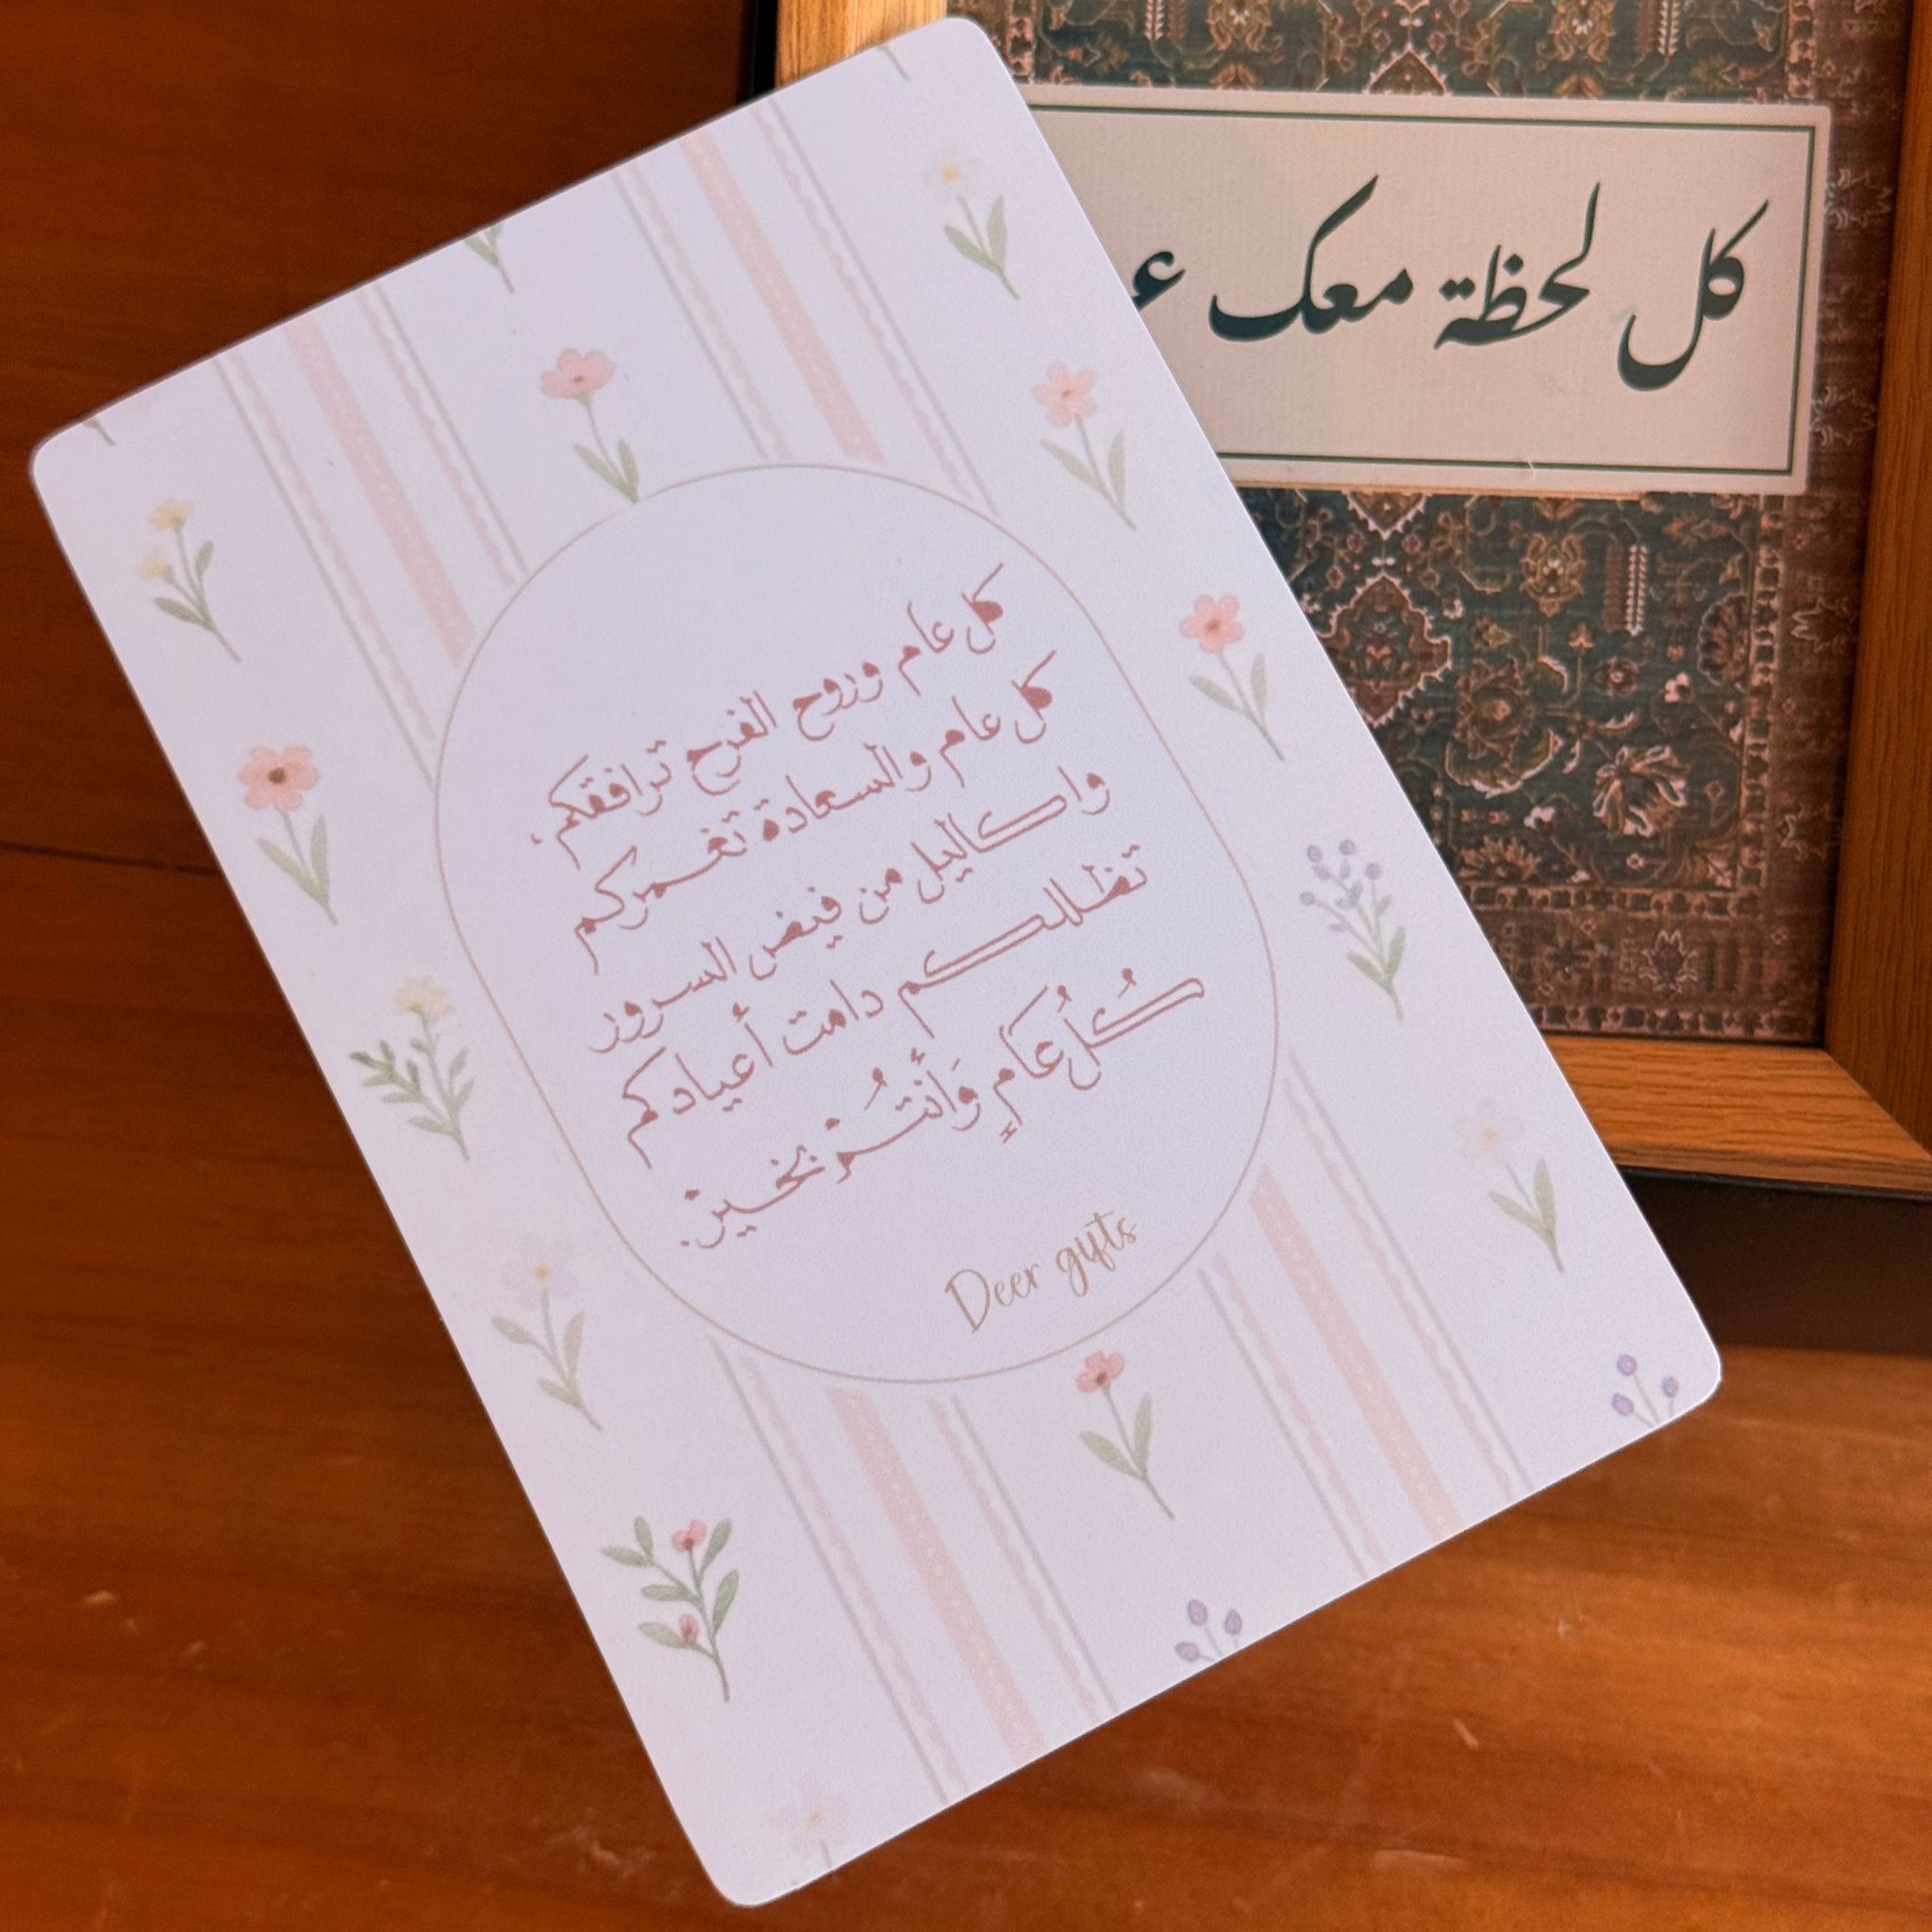 كل لحظة معك ع
كل عام وروح الفرح ترافقكم،
كل عام والسعادة تغمركم
واكاليل من فيض السرور
تظللكم دامت أعيادكم
كُلُ عَامٍ وَأنتُـمْ بخيرْ.
Deer gifts